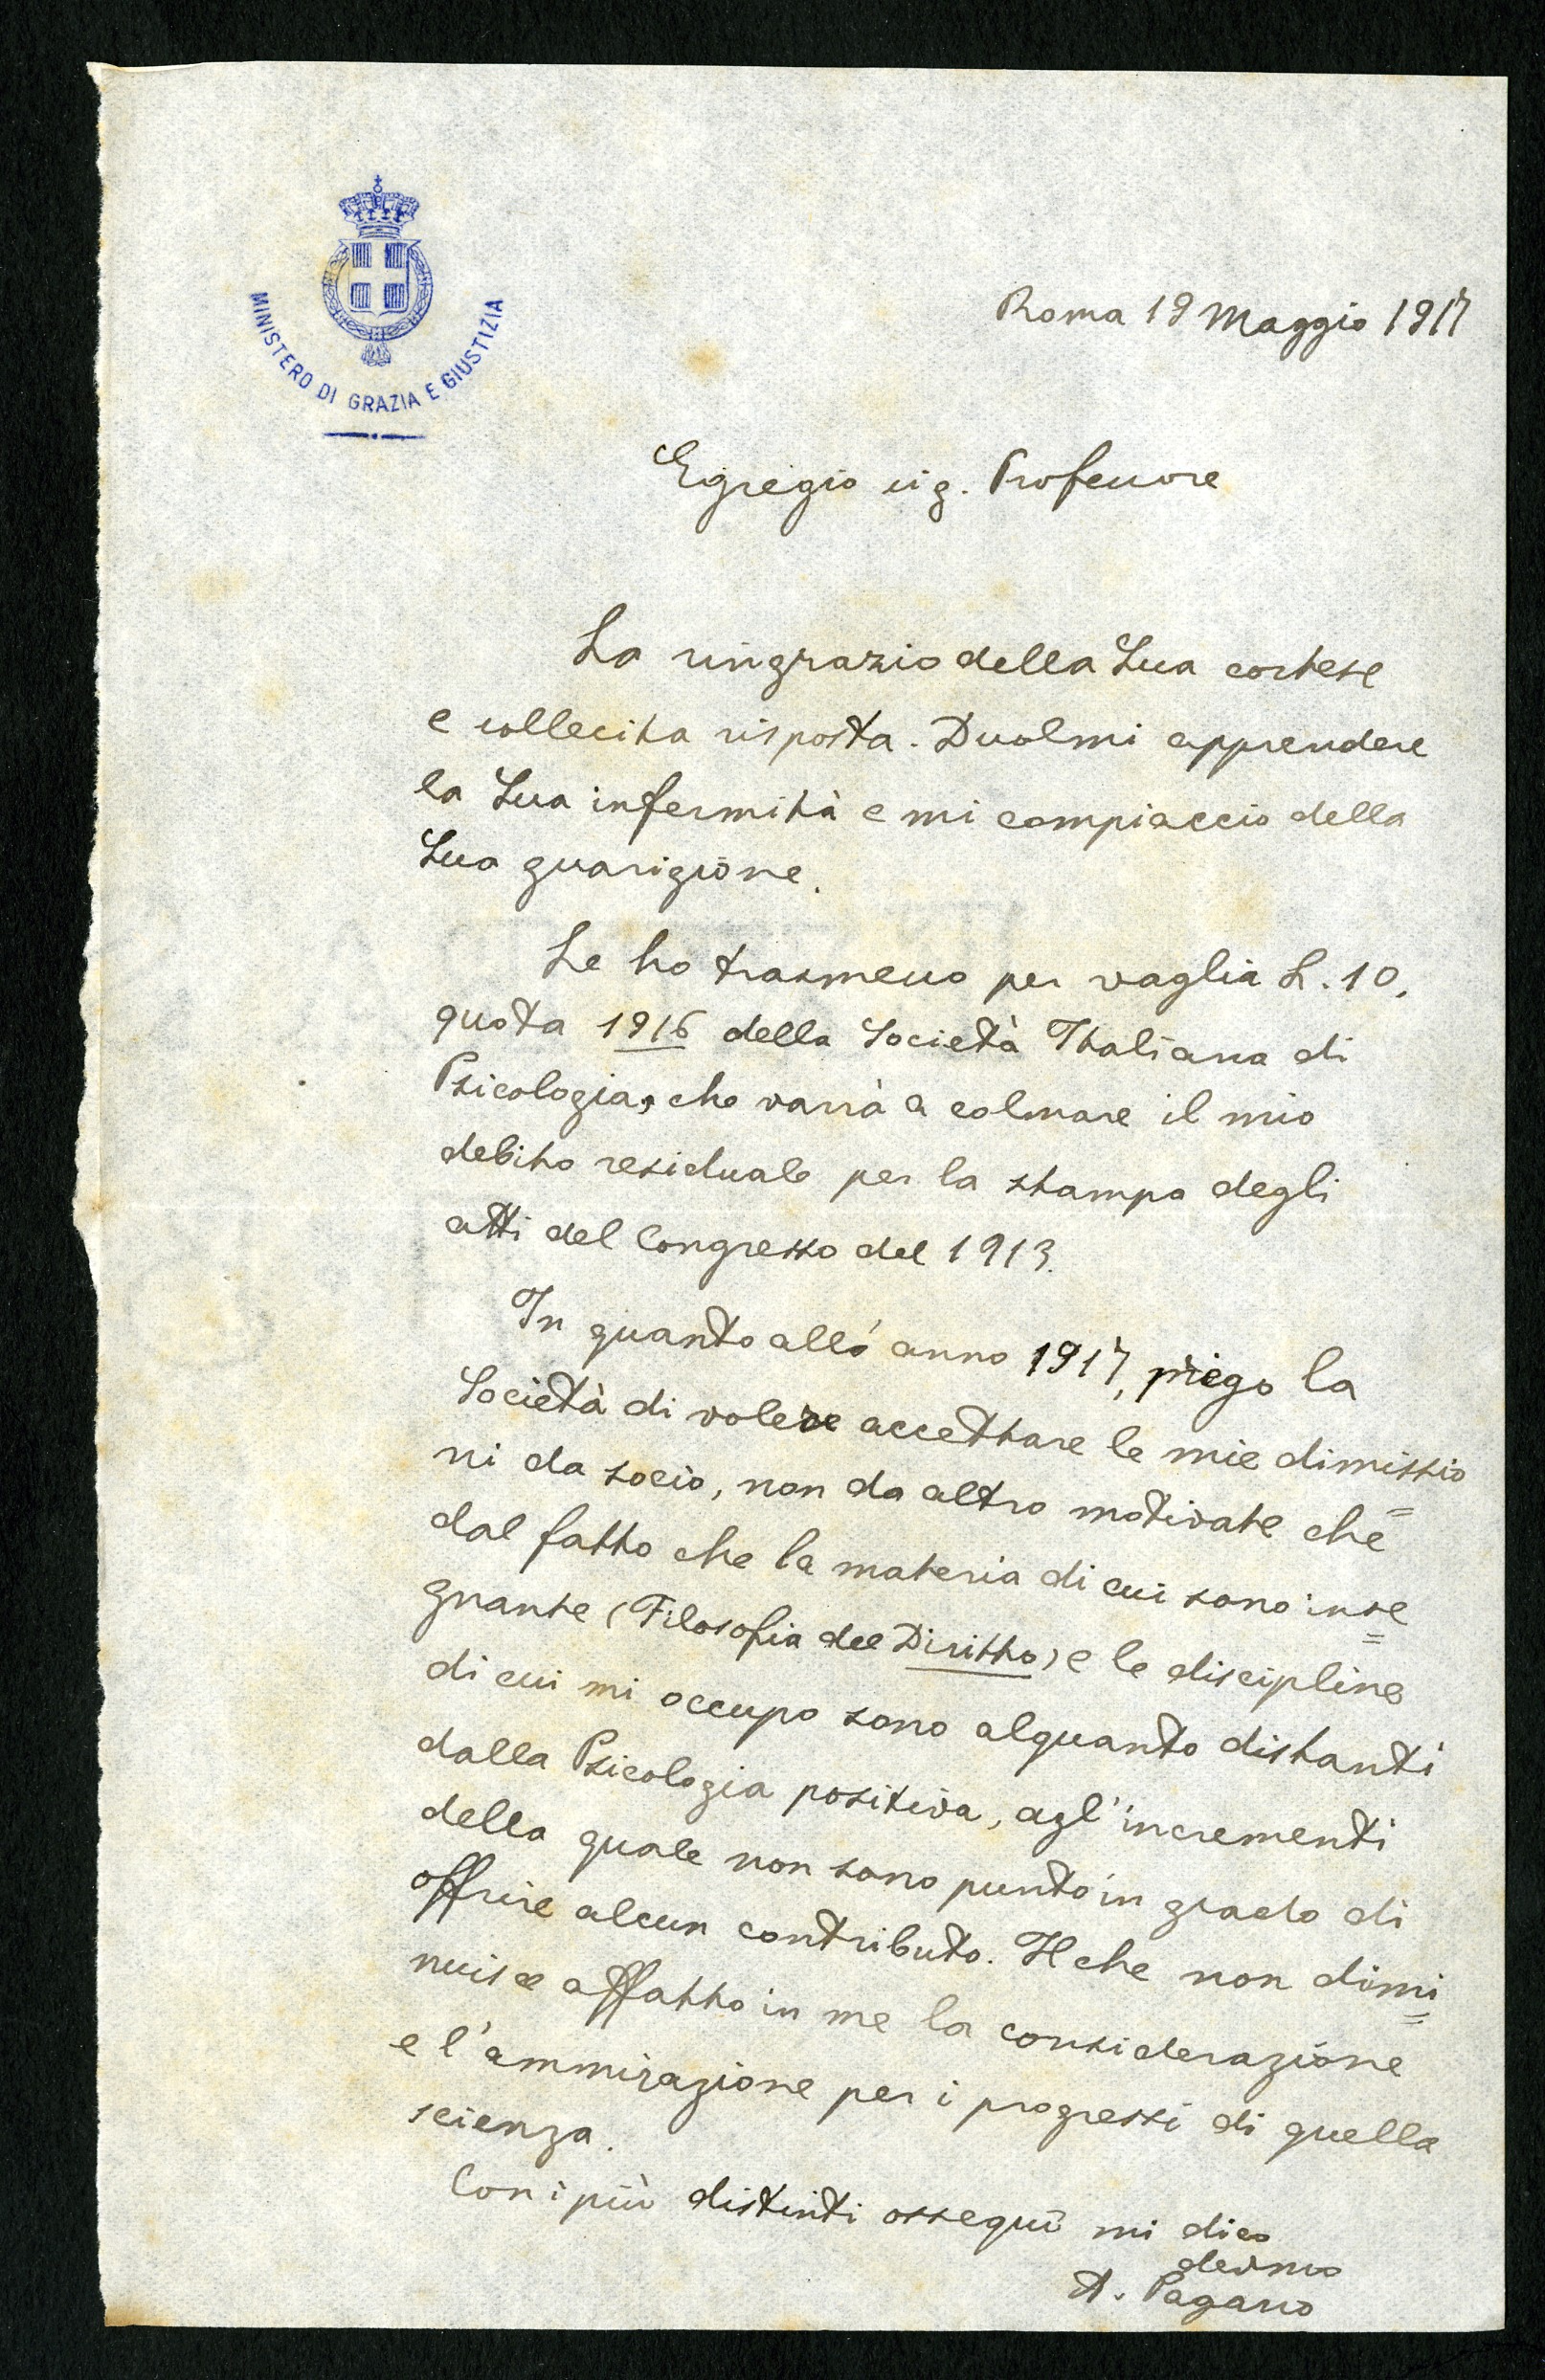 MINISTERO DI GRAZIA E GIUSTIZIA
Roma 19 Maggio 1917
Egregio sig. Professore
La ringrazio della Sua cortese
e sollecita risposta. Duolmi apprendere
la Sua infermità e mi compiaccio della
Sua guarigione.
Le ho trasmesso per vaglia L. 10,
quota 1916 della Società Italiana di
Psicologia, che varrà a colmare il mio
debito residuale per la stampa degli
atti del Congresso del 1913.
In quanto all'anno 1917, prego la
Società di volere accettare le mie dimissio
ni da socio, non da altro motivate che
dal fatto che la materia di cui sono inse=
gnante (Filosofia del Diritto) e le discipline
di cui mi occupo sono alquanto distanti
dalla Psicologia positiva, agl'incrementi
della quale non sono punto in grado di
offrire alcun contributo. Il che non dimi=
nuisce affatto in me la considerazione
e l'ammirazione per i progressi di quella
scienza.
Con i più distinti ossequi mi dico
devmo
A. Pagano